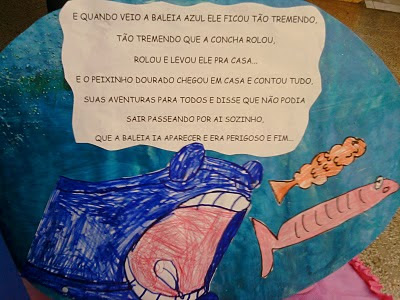 E QUANDO VEIO A BALEIA AZUL ELE FICOU TÃO TREMENDO,
TÃO TREMENDO QUE A CONCHA ROLOU,
ROLOU E LEVOU ELE PRA CASA...
E O PEIXINHO DOURADO CHEGOU EM CASA E CONTOU TUDO,
SUAS AVENTURAS PARA TODOS E DISSE QUE NÃO PODIA
SAIR PASSEANDO POR AI SOZINHO,
QUE A BALEIA IA APARECER E ERA PERIGOSO E FIM...